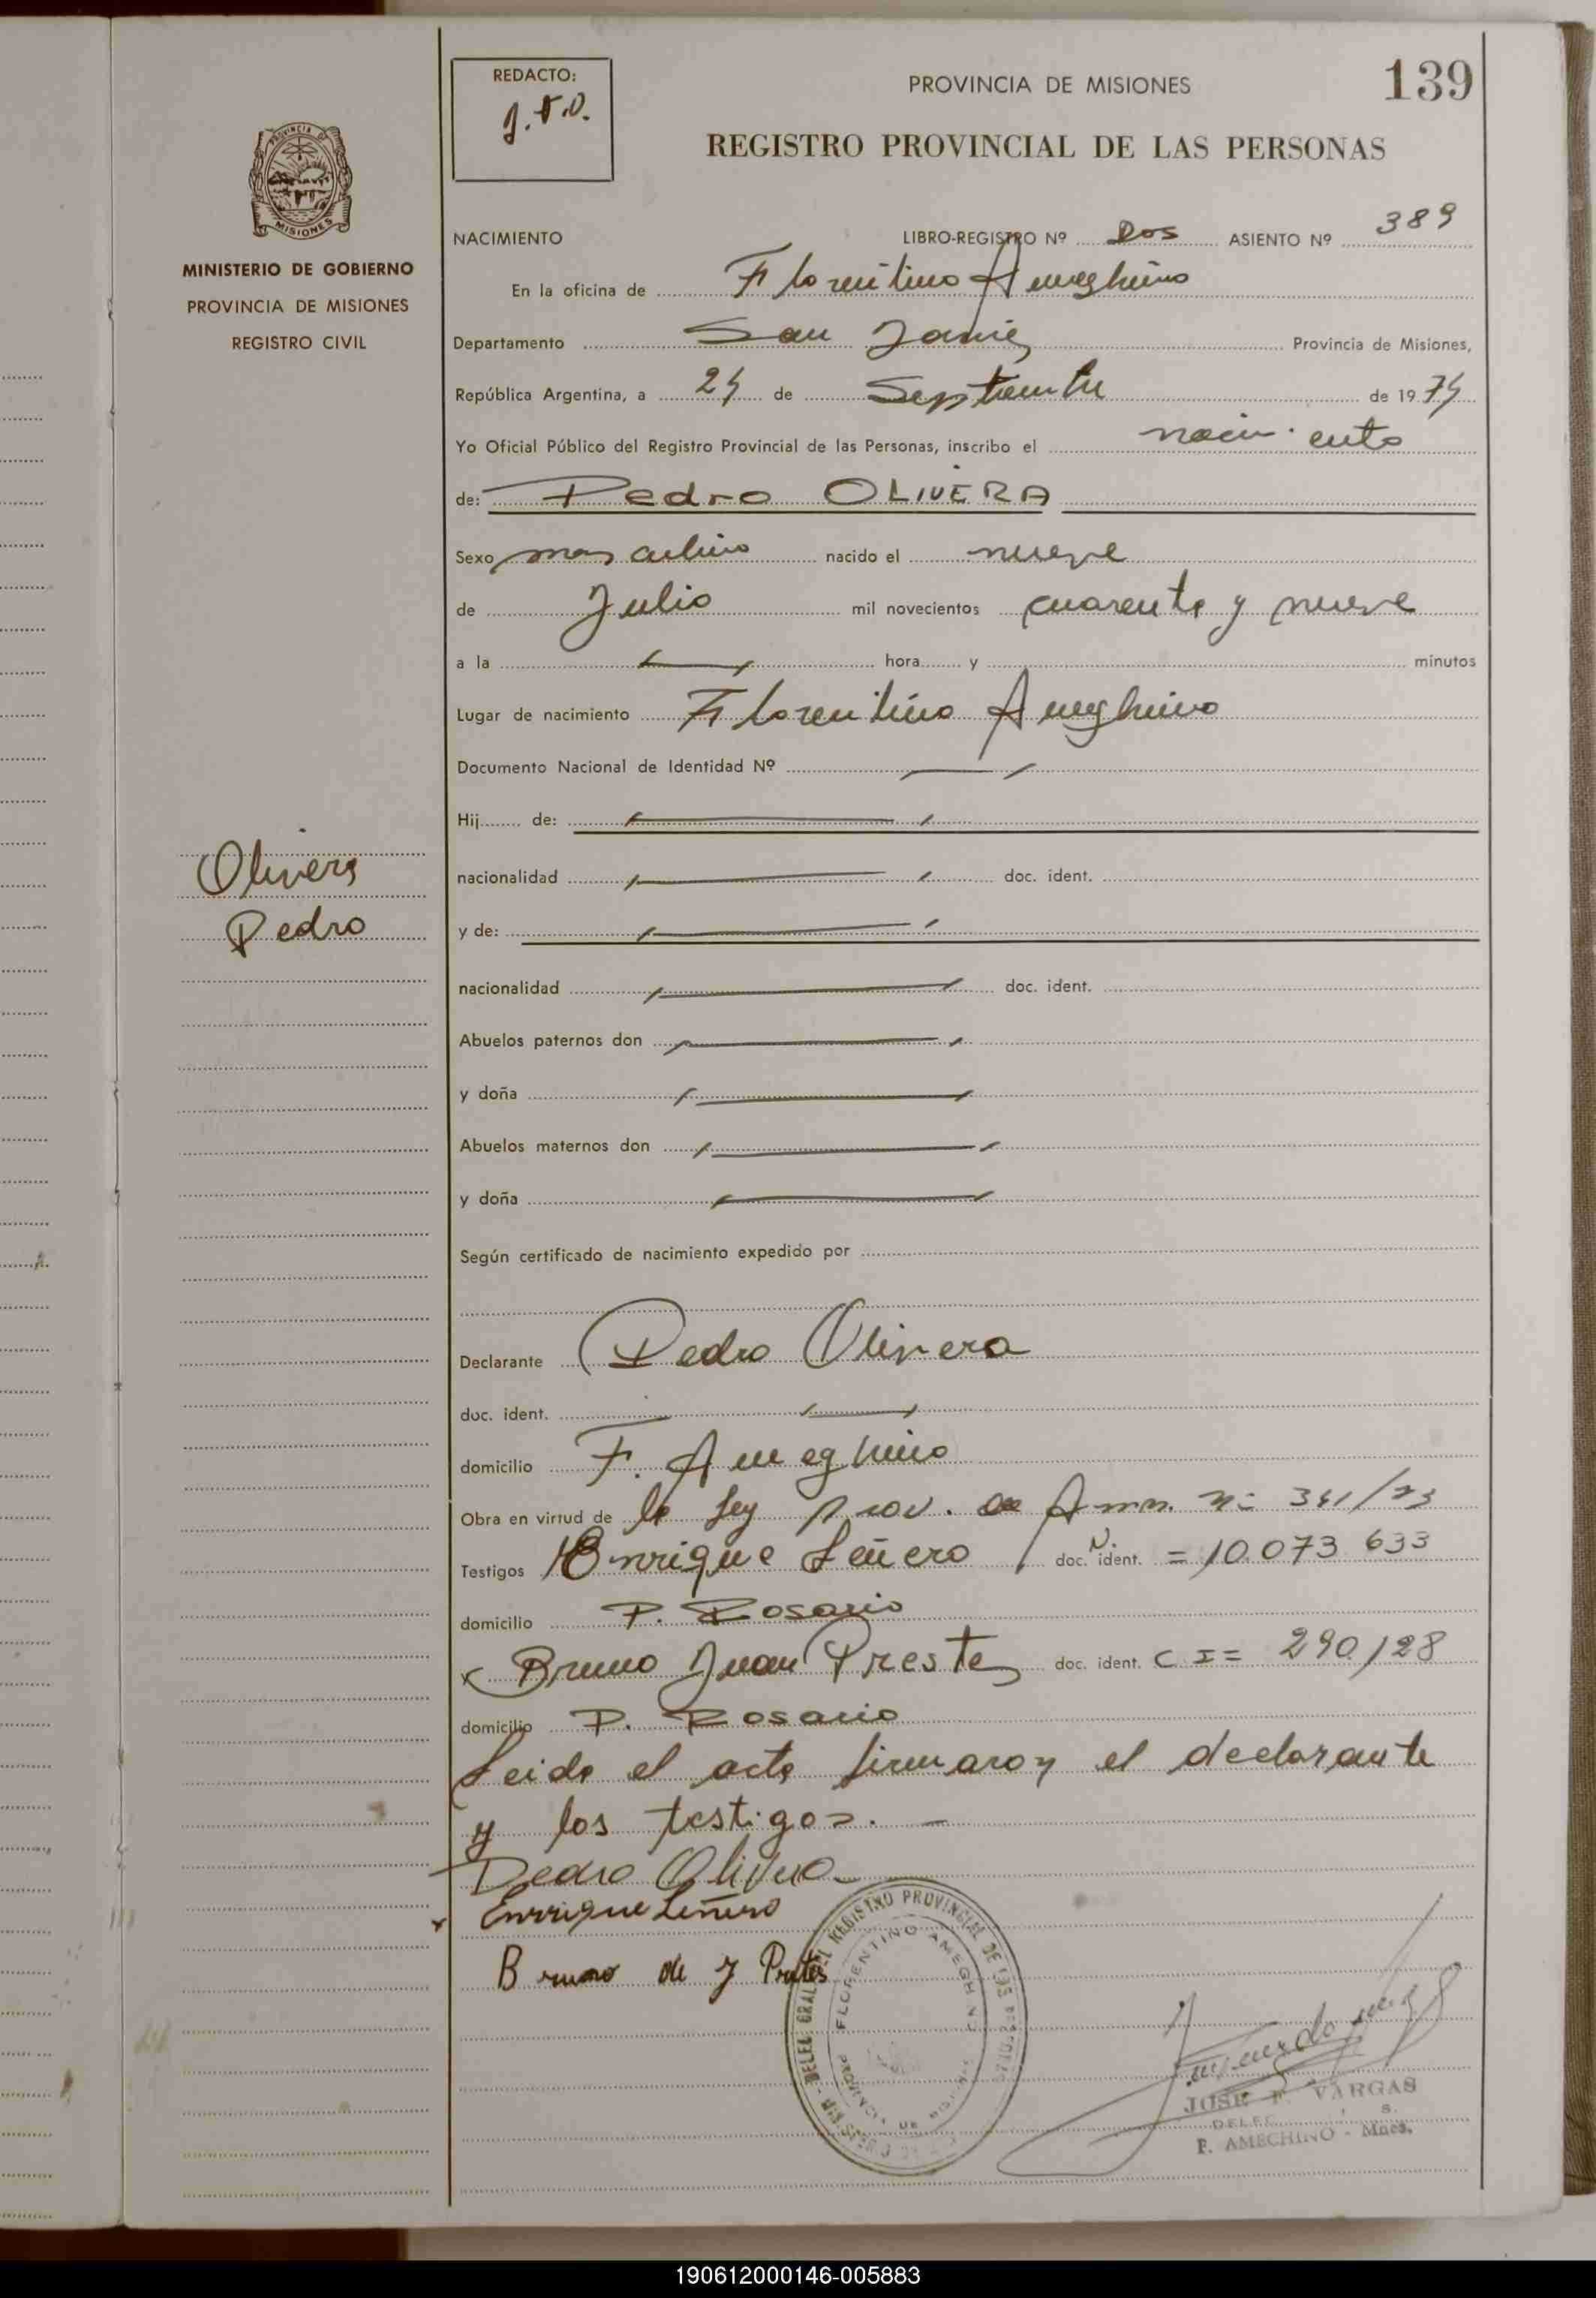 139
REDACTO:
J.F.V.
PROVINCIA DE MISIONES
REGISTRO PROVINCIAL DE LAS PERSONAS
PROVINCIA DE MISIONES
MINISTERIO DE GOBIERNO
PROVINCIA DE MISIONES
REGISTRO CIVIL
NACIMIENTO LIBRO-REGISTRO Nº Dos ASIENTO Nº 389
En la oficina de Florentino Ameghino
Departamento San Javier Provincia de Misiones,
República Argentina, a 24 de Septiembre de 1974
Yo Oficial Público del Registro Provincial de las Personas, inscribo el nacimiento
de: Pedro OLIVERA
Sexo masculino nacido el nueve
de Julio mil novecientos cuarenta y nueve
a la hora y minutos
Lugar de nacimiento Florentino Ameghino
Documento Nacional de Identidad Nº
Hij de:
Olivera
nacionalidad doc. ident.
Pedro
y de:
nacionalidad doc. ident.
Abuelos paternos don
y doña
Abuelos maternos don
y doña
Según certificado de nacimiento expedido por
Declarante Pedro Olivera
doc. ident.
domicilio F. Ameghino
Obra en virtud de la Ley Prov. de Amn. Nº
Testigos Enrrique Leñero doc. ident. N. = 10.073 633
domicilio P. Rosario
x Bruno Juan Prestes doc. ident. C I = 290128
domicilio P. Rosario
Leida el acta firmaron el declarante
y los testigos. —
Pedro Olivera
x Enrrique Leñero
Bruno de J Prates
DELEG. GRAL. DEL REGISTRO PROVINCIAL DE LAS PERSONAS
FLORENTINO AMEGHINO
PROVINCIA DE MISIONES
JOSE F. VARGAS
F. AMECHINO - Mnes.
190612000146-005883